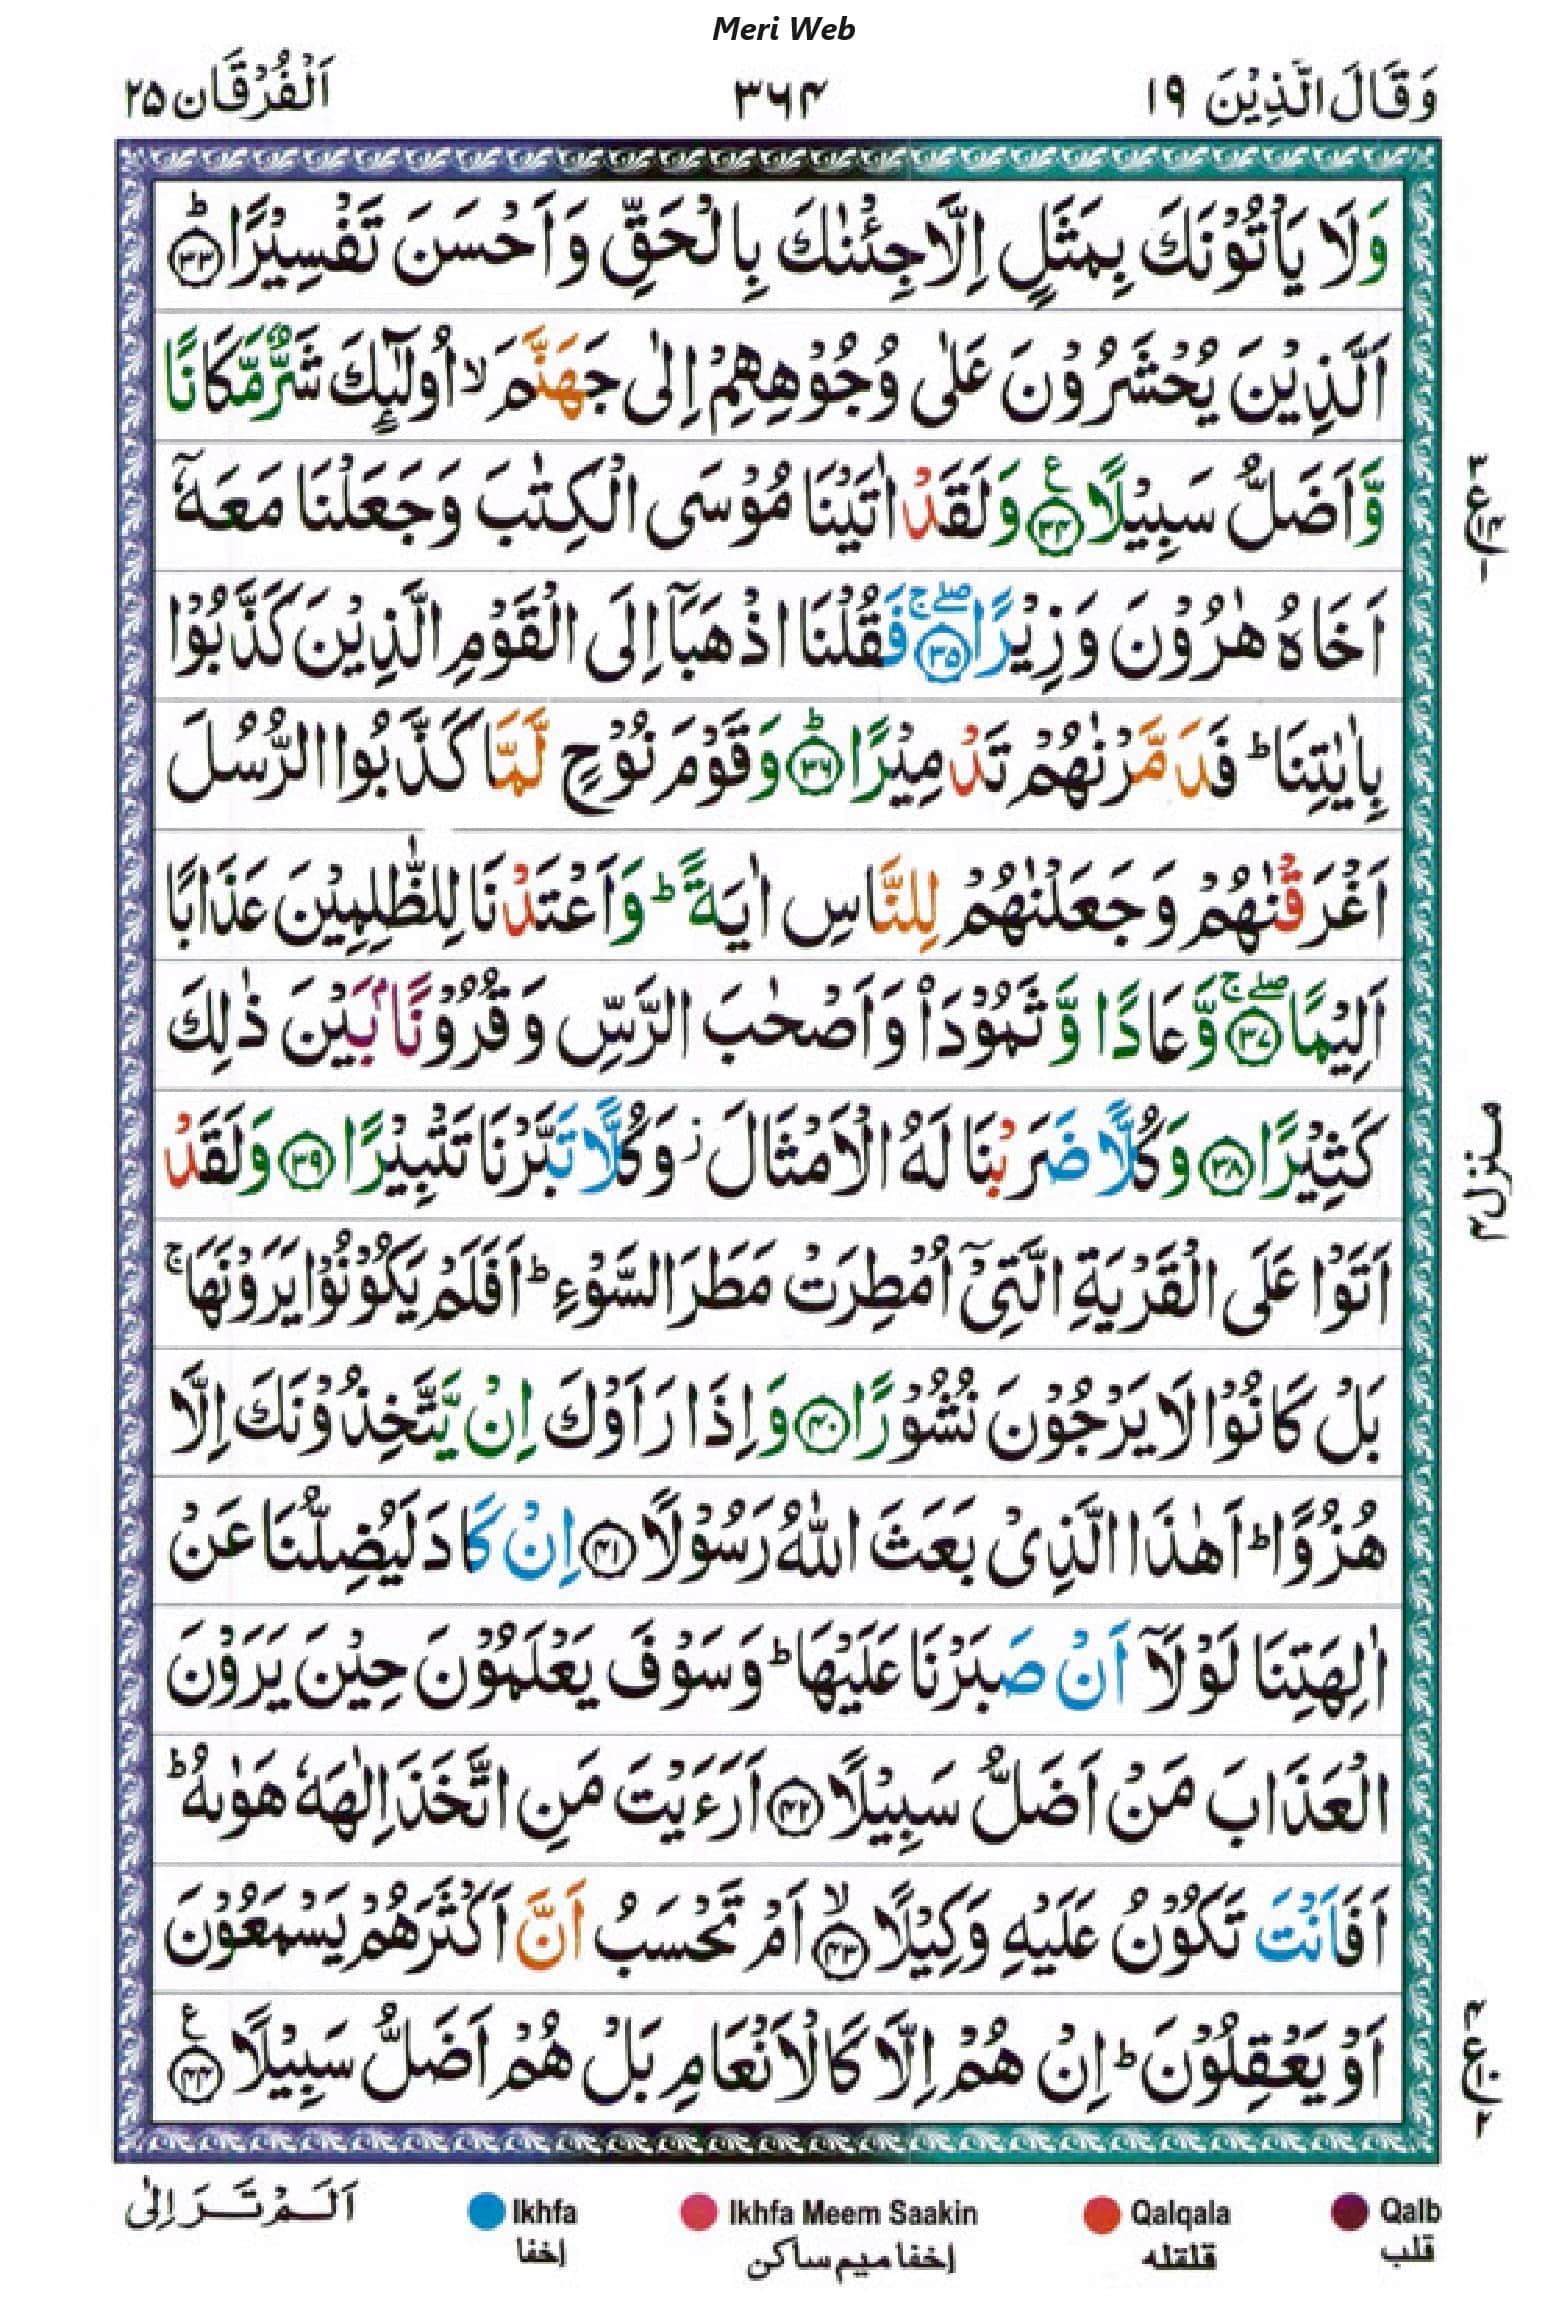 Meri Web
وَقَالَ الَّذِیْنَ ۱۹
۳۶۴
اَلْفُرْقَان ۲۵
وَلَا یَاْتُوْنَكَ بِمَثَلٍ اِلَّا جِئْنٰكَ بِالْحَقِّ وَاَحْسَنَ تَفْسِیْرًا ؕ۳۳
اَلَّذِیْنَ یُحْشَرُوْنَ عَلٰی وُجُوْهِهِمْ اِلٰی جَهَنَّمَ ۙ اُولٰٓئِكَ شَرٌّ مَّكَانًا
وَّاَضَلُّ سَبِیْلًا ۠۳۴ وَلَقَدْ اٰتَیْنَا مُوْسَی الْكِتٰبَ وَجَعَلْنَا مَعَهٗۤ
اَخَاهُ هٰرُوْنَ وَزِیْرًا ۚۖ۳۵ فَقُلْنَا اذْهَبَاۤ اِلَی الْقَوْمِ الَّذِیْنَ كَذَّبُوْا
بِاٰیٰتِنَا ؕ فَدَمَّرْنٰهُمْ تَدْمِیْرًا ؕ۳۶ وَقَوْمَ نُوْحٍ لَّمَّا كَذَّبُوا الرُّسُلَ
اَغْرَقْنٰهُمْ وَجَعَلْنٰهُمْ لِلنَّاسِ اٰیَةً ؕ وَاَعْتَدْنَا لِلظّٰلِمِیْنَ عَذَابًا
اَلِیْمًا ۚۖ۳۷ وَّعَادًا وَّثَمُوْدَا۟ وَاَصْحٰبَ الرَّسِّ وَقُرُوْنًۢا بَیْنَ ذٰلِكَ
كَثِیْرًا ۳۸ وَكُلًّا ضَرَبْنَا لَهُ الْاَمْثَالَ ؗ وَكُلًّا تَبَّرْنَا تَتْبِیْرًا ۳۹ وَلَقَدْ
اَتَوْا عَلَی الْقَرْیَةِ الَّتِیْۤ اُمْطِرَتْ مَطَرَ السَّوْءِ ؕ اَفَلَمْ یَكُوْنُوْا یَرَوْنَهَا ۚ
بَلْ كَانُوْا لَا یَرْجُوْنَ نُشُوْرًا ۴۰ وَاِذَا رَاَوْكَ اِنْ یَّتَّخِذُوْنَكَ اِلَّا
هُزُوًا ؕ اَهٰذَا الَّذِیْ بَعَثَ اللّٰهُ رَسُوْلًا ۴۱ اِنْ كَادَ لَیُضِلُّنَا عَنْ
اٰلِهَتِنَا لَوْلَاۤ اَنْ صَبَرْنَا عَلَیْهَا ؕ وَسَوْفَ یَعْلَمُوْنَ حِیْنَ یَرَوْنَ
الْعَذَابَ مَنْ اَضَلُّ سَبِیْلًا ۴۲ اَرَءَیْتَ مَنِ اتَّخَذَ اِلٰهَهٗ هَوٰىهُ ؕ
اَفَاَنْتَ تَكُوْنُ عَلَیْهِ وَكِیْلًا ۙ۴۳ اَمْ تَحْسَبُ اَنَّ اَكْثَرَهُمْ یَسْمَعُوْنَ
اَوْ یَعْقِلُوْنَ ؕ اِنْ هُمْ اِلَّا كَالْاَنْعَامِ بَلْ هُمْ اَضَلُّ سَبِیْلًا ۠۴۴
منزل ۴
اَلَمْ تَرَ اِلٰی
Ikhfa
إخفا
Ikhfa Meem Saakin
إخفا ميم ساكن
Qalqala
قلقله
Qalb
قلب